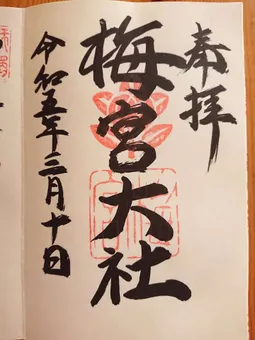 奉拝
梅宮大社
令和五年三月十日